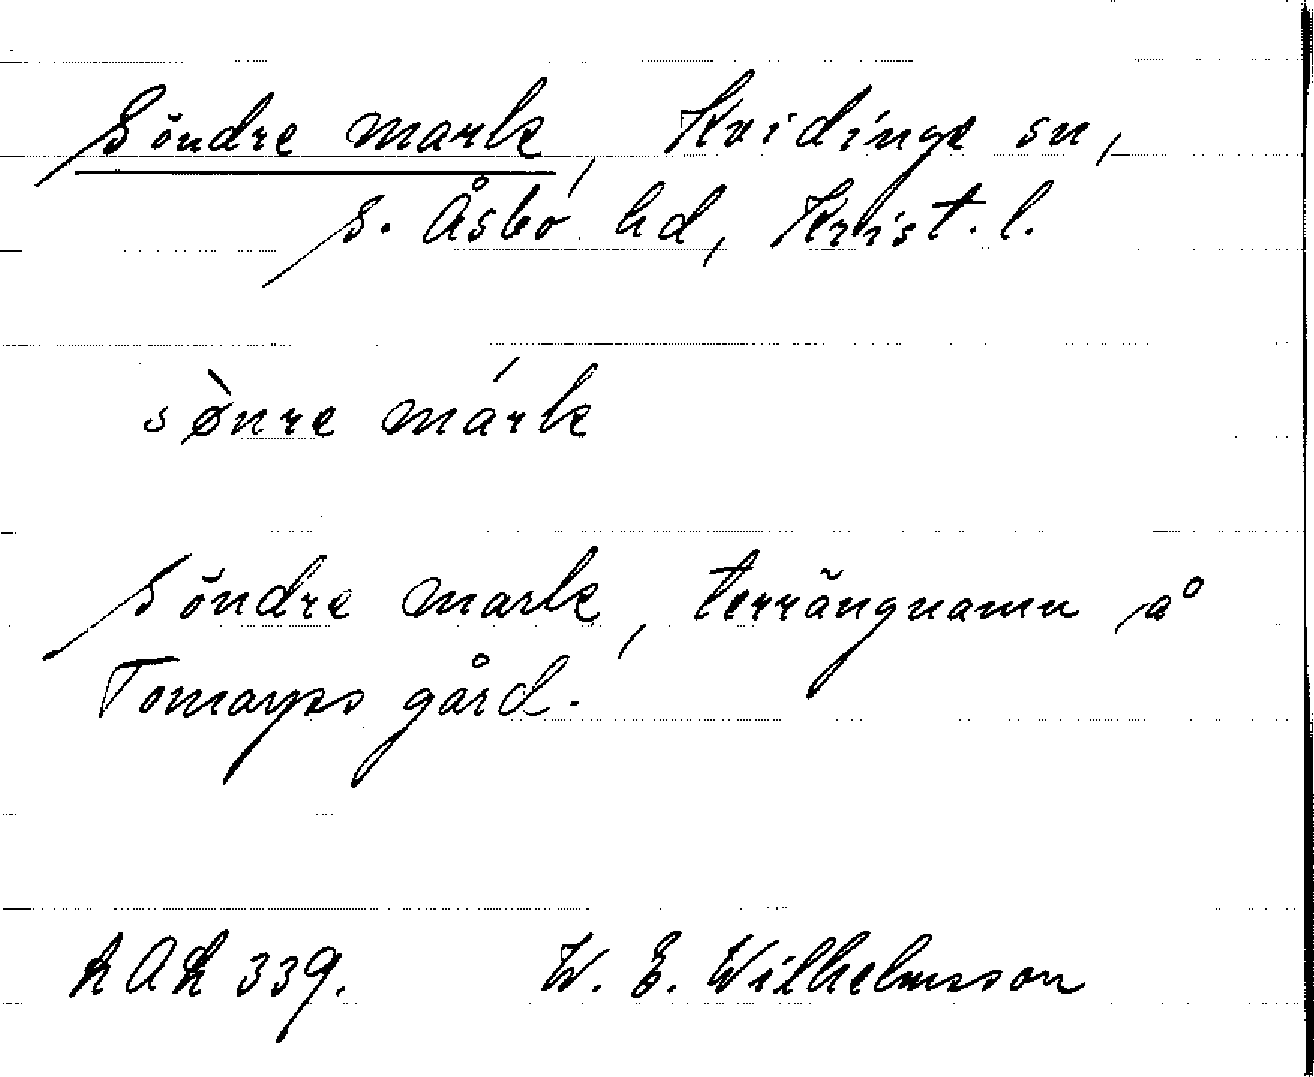 Söndre mark, Kvidinge sn,
S. Åsbo hd, Krist. l.
sø̀nre márk
Söndre mark, terrängnamn på
Tomarps gård.
LAL 339. W. E. Wilhelmsson